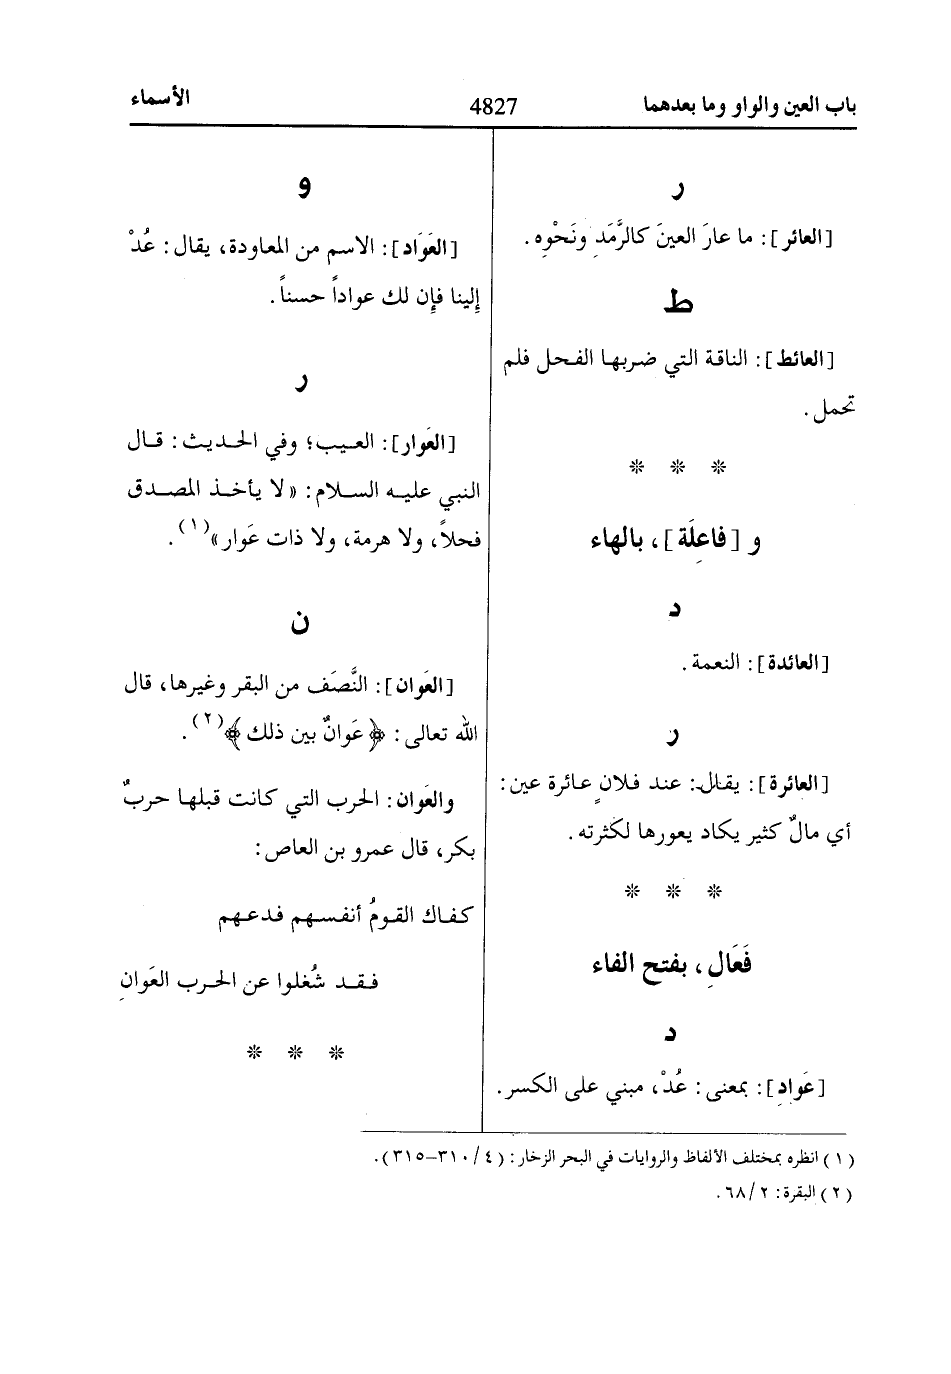 باب العين والواو وما بعدهما 4827 الأسماء
ر
[العائر]: ما عارَ العينَ كالرَّمَدِ ونَحْوِه.
ط
[العائط]: الناقة التي ضربها الفحل فلم
تحمل.
* * *
و [فاعِلَة]، بالهاء
د
[العائدة]: النعمة.
ر
[العائرة]: يقال: عند فلانٍ عائرة عين:
أي مالٌ كثير يكاد يعورها لكثرته.
* * *
فَعَالِ، بفتح الفاء
د
[عَوادِ]: بمعنى: عُدْ، مبني على الكسر.
و
[العَوَاد]: الاسم من المعاودة، يقال: عُدْ
إلينا فإن لك عواداً حسناً.
ر
[العَوار]: العيب؛ وفي الحديث: قال
النبي عليه السلام: «لا يأخذ المصدق
فحلاً، ولا هرمة، ولا ذات عَوار»(١).
ن
[العَوان]: النَّصَف من البقر وغيرها، قال
الله تعالى: ﴿عَوانٌ بين ذلك﴾(٢).
والعَوان: الحرب التي كانت قبلها حربٌ
بكر، قال عمرو بن العاص:
كفاك القومُ أنفسهم فدعهم
فقد شُغلوا عن الحرب العَوانِ
* * *
(١) انظره بمختلف الألفاظ والروايات في البحر الزخار: (٤/٣١٠-٣١٥).
(٢) البقرة: ٢/٦٨.